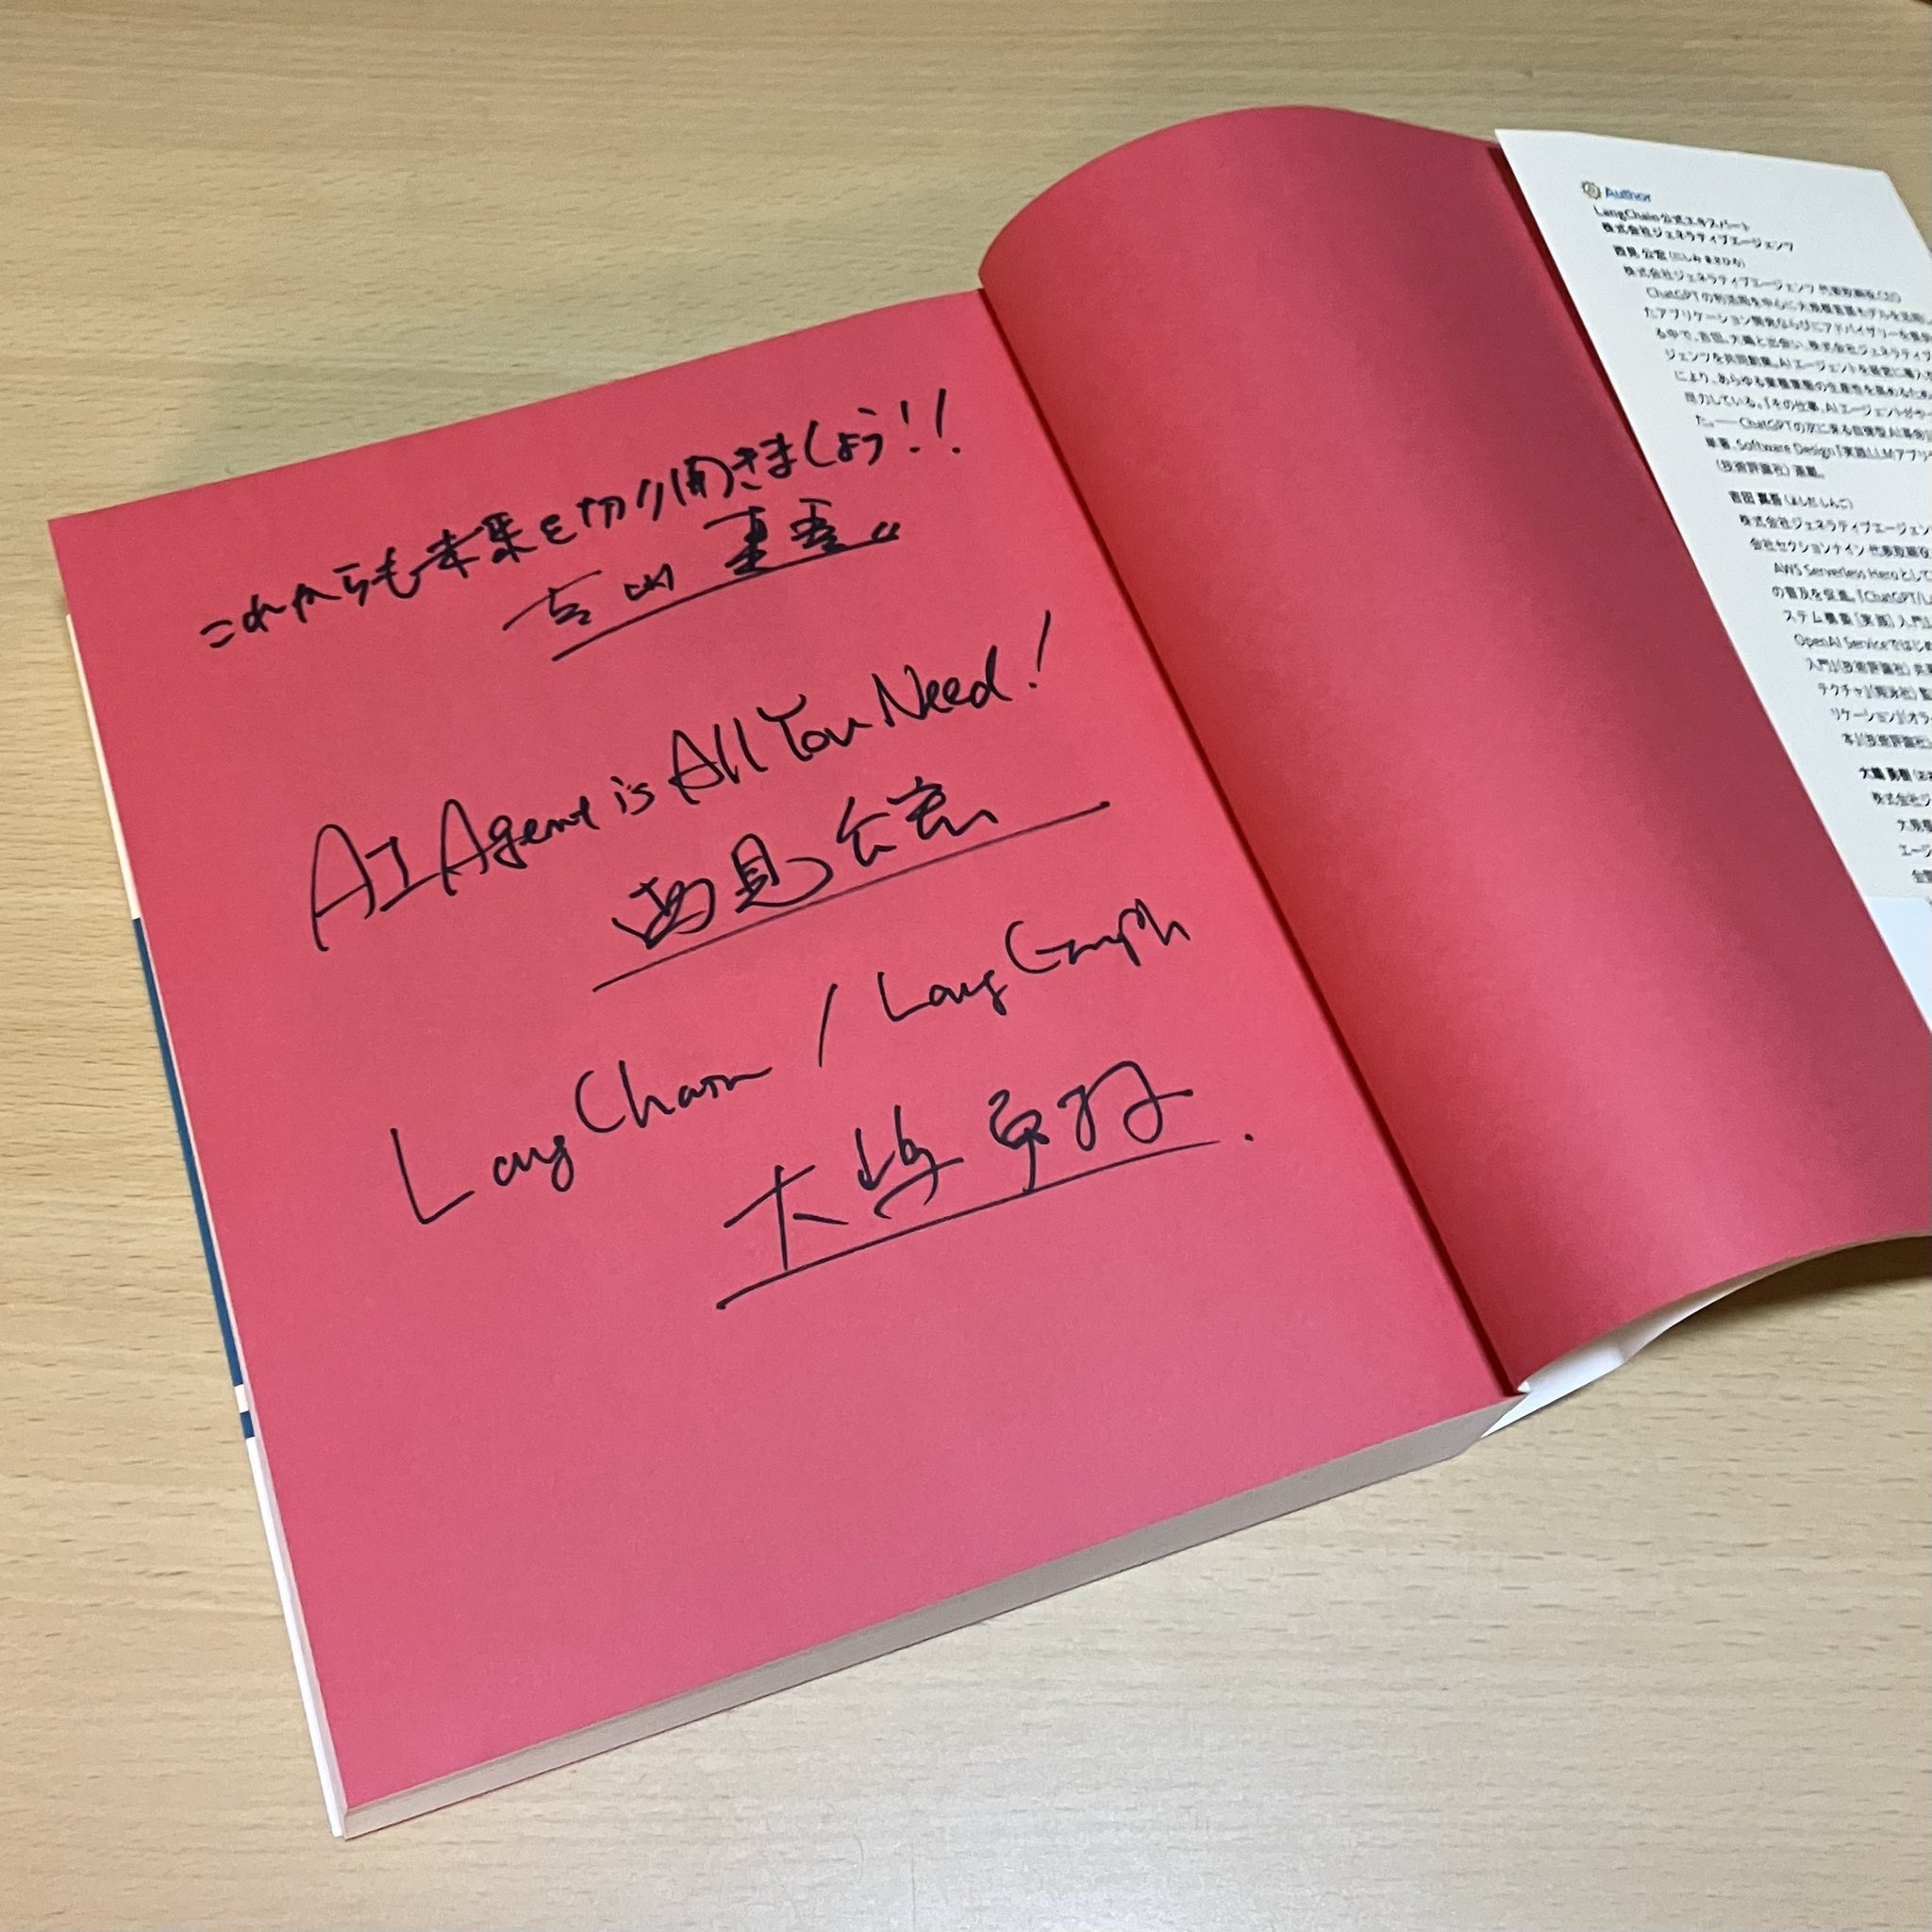 これからも未来を切り開きましょう!!
吉田 真吾
AI Agent is All You Need!
西見 公宏
LangChain / LangGraph
大嶋 勇樹
Author
LangChain公式エキスパート
株式会社ジェネラティブエージェンツ
西見 公宏(にしみ まさひろ)
株式会社ジェネラティブエージェンツ 代表取締役CEO
ChatGPTの利活用を中心に大規模言語モデルを活用し
たアプリケーション開発ならびにアドバイザリーを
る中で、吉田、大嶋と出会い、株式会社ジェネラティブ
ジェンツを共同創業。AIエージェントを経営に導入
により、あらゆる業種業態の生産性を高めるため
尽力している。『その仕事、AIエージェントがやっ
た。――ChatGPTの次に来る自律型AI革命』
単著、Software Design『実践LLMアプリ
(技術評論社)連載。
吉田 真吾(よしだ しんご)
株式会社ジェネラティブエージェン
会社セクションナイン 代表取締役
AWS Serverless Heroとして
の普及を促進。『ChatGPT/La
ステム構築[実践]入門』
OpenAI Serviceではじめ
入門』(技術評論社)共
テクチャ』(翔泳社)監
リケーション』(オラ
本』(技術評論社)
大嶋 勇樹(お
株式会社ジ
大規模
エージ